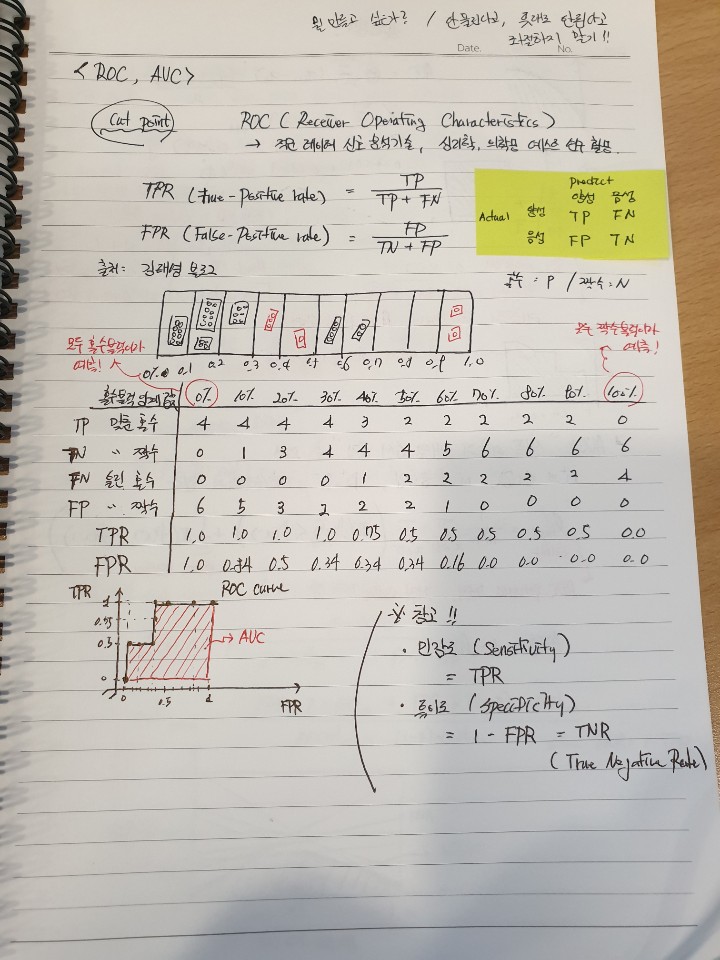 뭘 만들고 싶은가? / 안풀린다고, 뜻대로 안된다고
좌절하지 말기!!
Date. No.
< ROC, AUC >
Cut point
ROC ( Receiver Operating Characteristics )
→ 적은 레이더 신호 분석기술, 심리학, 의학용 테스트
TPR (True-Positive rate) = TP / TP + FN
FPR (False-Positive rate) = FP / TN + FP
Predict
양성 음성
Actual 양성 TP FN
음성 FP TN
출처: 김태영 부르2
홀수 = P / 짝수 = N
모두 홀수블럭이라 예측!
모두 짝수블럭이라 예측!
0.0 0.1 0.2 0.3 0.4 0.5 0.6 0.7 0.8 0.9 1.0
홀수블럭 임계값 0% 10% 20% 30% 40% 50% 60% 70% 80% 90% 100%
TP 맞춘 홀수 4 4 4 4 3 2 2 2 2 2 0
TN 〃 짝수 0 1 3 4 4 4 5 6 6 6 6
FN 틀린 홀수 0 0 0 0 1 2 2 2 2 2 4
FP 〃 짝수 6 5 3 2 2 2 1 0 0 0 0
TPR 1.0 1.0 1.0 1.0 0.75 0.5 0.5 0.5 0.5 0.5 0.0
FPR 1.0 0.84 0.5 0.34 0.34 0.34 0.16 0.0 0.0 0.0 0.0
TPR
ROC curve
1
0.75
0.5
0
→ AUC
0 0.5 1
FPR
※ 참고!!
· 민감도 (Sensitivity)
= TPR
· 특이도 (Specificity)
= 1 - FPR = TNR
(True Negative Rate)